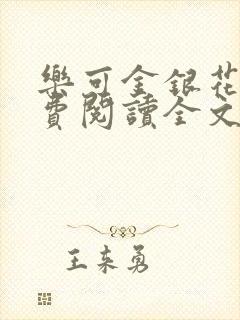 樂可金銀花
費閱讀全文
王来勇